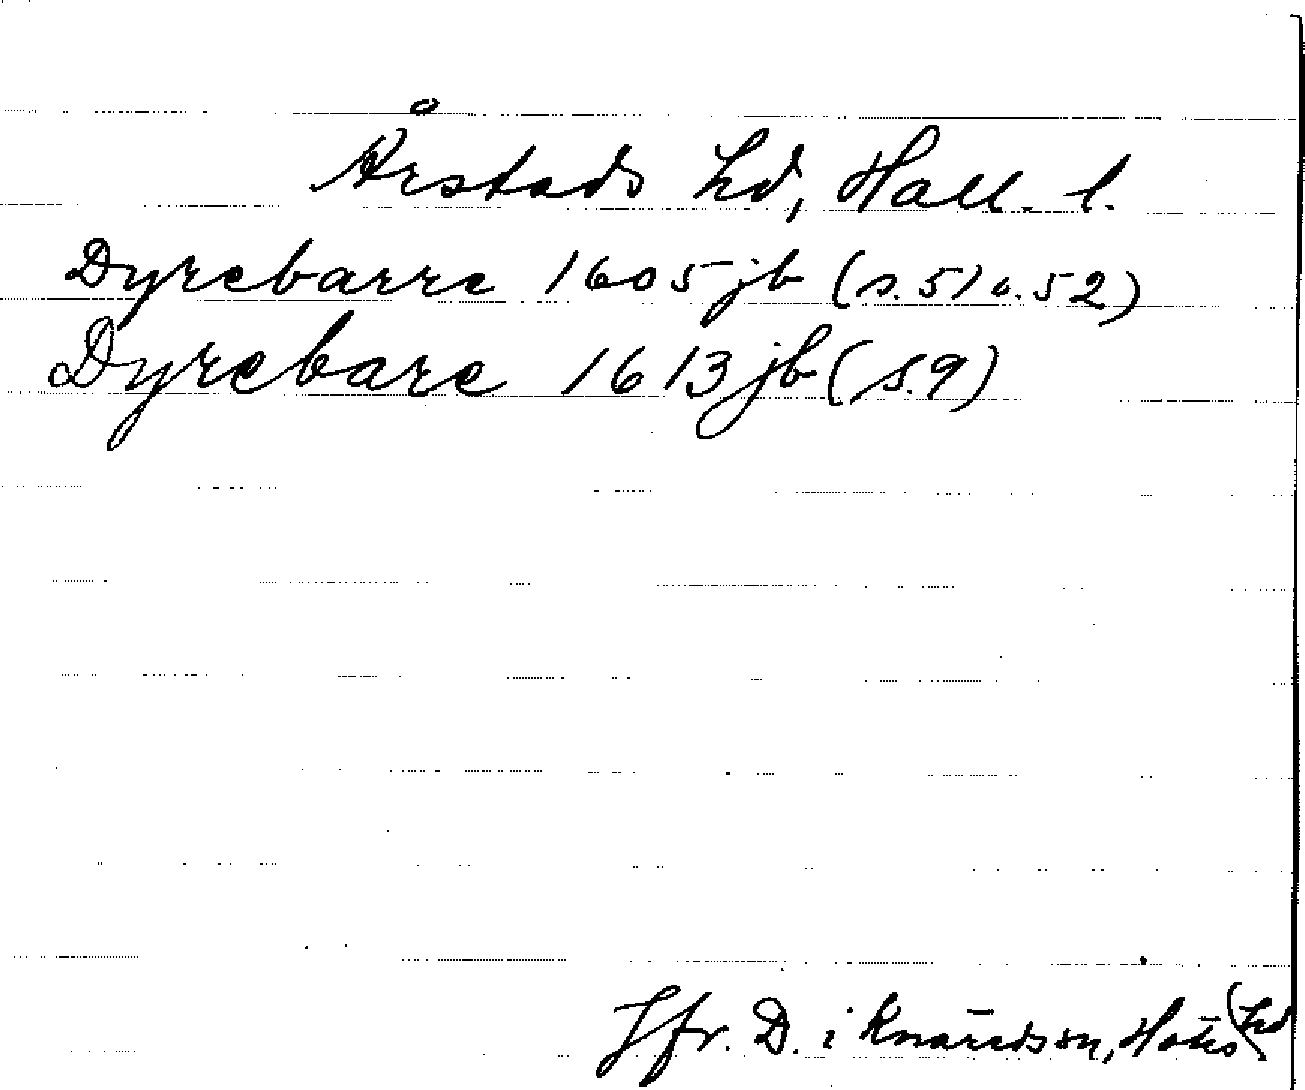 Årstads hd, Hall. l.
Dyrebarre 1605 jb (s. 51 o. 52)
Dyrebare 1613 jb (s. 9)
Jfr. D. i Knäreds sn, Höks hd